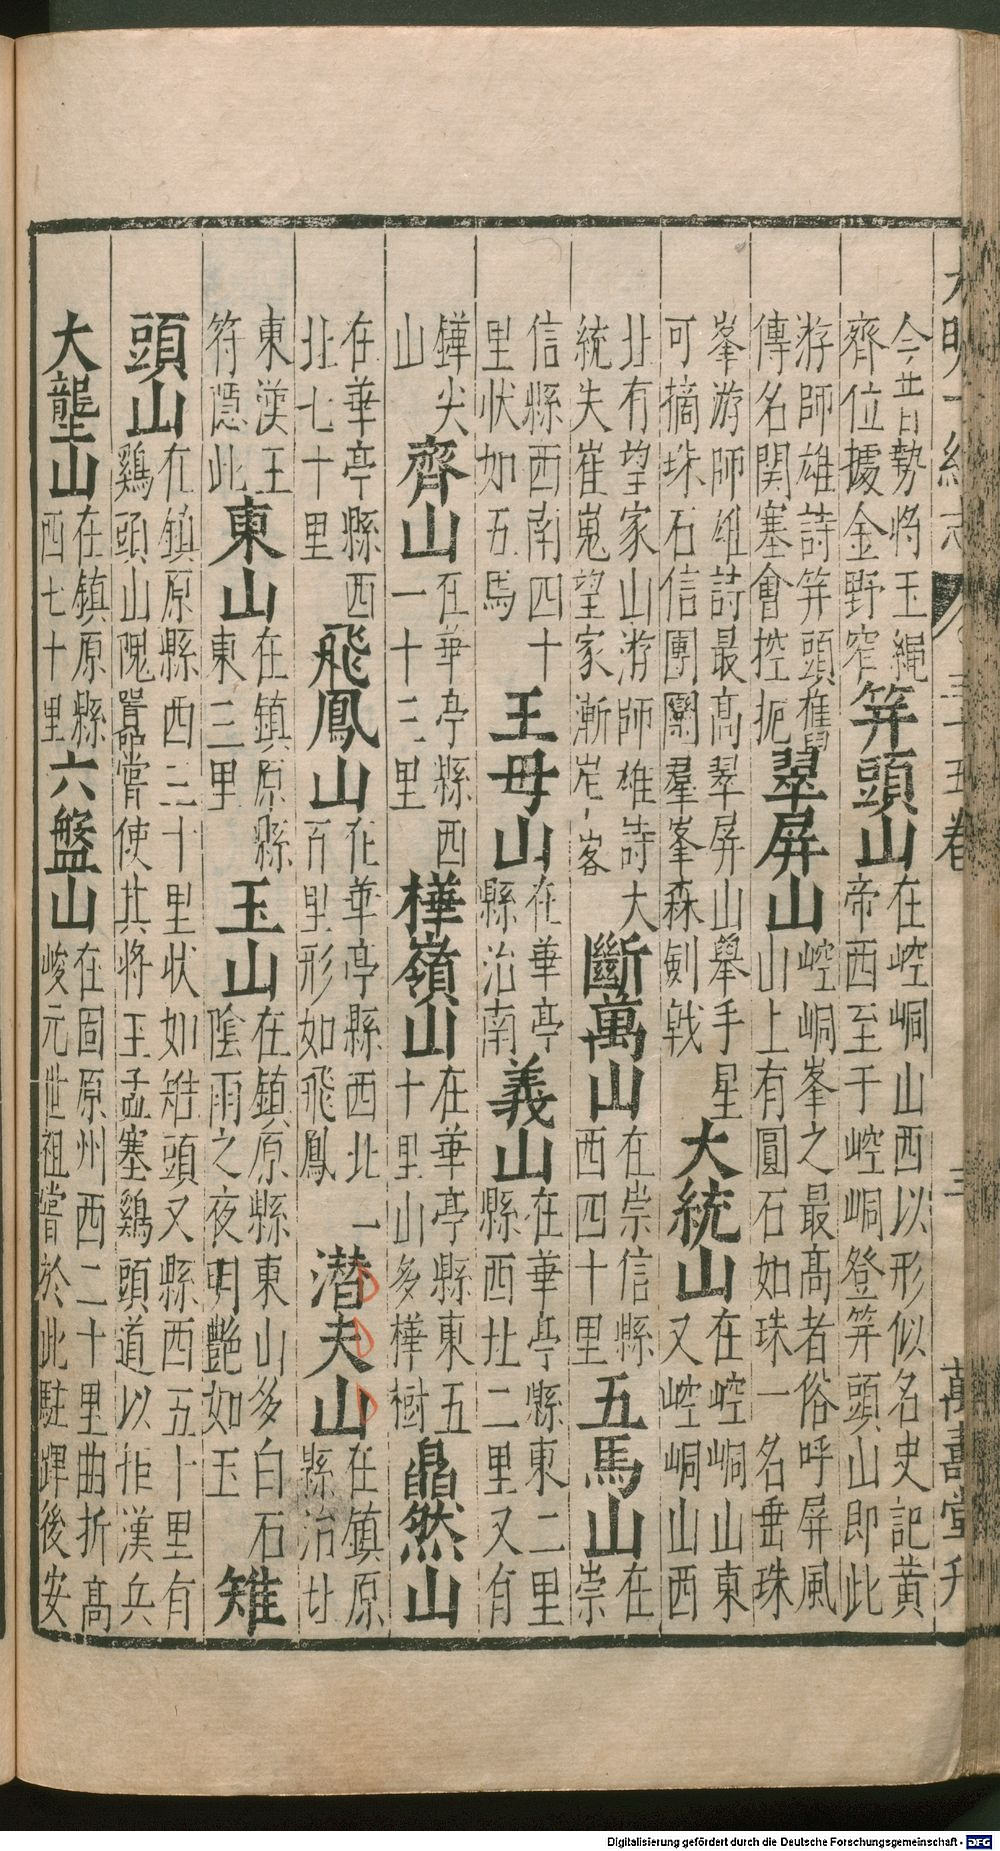 大明一統志　三十五卷　三　萬壽堂刋
今昔勢將玉繩
齊位據金野窄
笄頭山
在崆峒山西以形似名史記黃
帝西至于崆峒登笄頭山即此
游師雄詩笄頭舊
傳名関塞會控扼
翠屏山
崆峒峯之最高者俗呼屏風
山上有圓石如珠一名垂珠
峯游師雄詩最高翠屏山舉手星
可摘珠石信團圞羣峯森劍戟
大統山
在崆峒山東
又崆峒山西
北有望家山游師雄詩大
統失崔嵬望家漸岝客
斷萬山
在崇信縣
西四十里
五馬山
在
崇
信縣西南四十
里狀如五馬
王母山
在華亭
縣治南
義山
在華亭縣東二里
縣西北二里又有
鏵尖
山
齊山
在華亭縣西
一十三里
樺嶺山
在華亭縣東五
十里山多樺樹
皛然山
在華亭縣西
北七十里
飛鳳山
在華亭縣西北一
百里形如飛鳳
潜夫山
在鎮原
縣治北
東漢王
符隱此
東山
在鎮原縣
東三里
玉山
在鎮原縣東山多白石
陰雨之夜明艷如玉
雉
頭山
在鎮原縣西三十里狀如雉頭又縣西五十里有
鷄頭山隗囂嘗使其將王孟塞鷄頭道以拒漢兵
大壟山
在鎮原縣
西七十里
六盤山
在固原州西二十里曲折高
峻元世祖嘗於此駐蹕後安
Digitalisierung gefördert durch die Deutsche Forschungsgemeinschaft - DFG